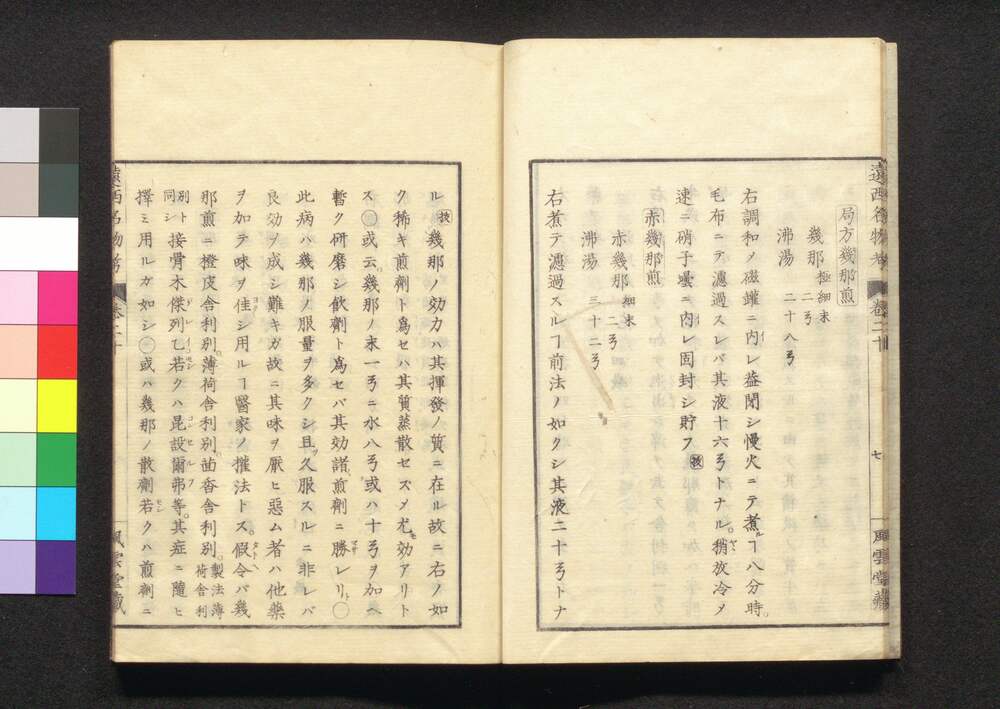 遠西名物考
巻二十
七
風雲堂藏
局方幾那煎
幾那 極細末 二弓
沸湯 二十八弓
右調和メ磁罐ニ内レ葢閉シ慢火ニテ煮ルヿ八分時。
毛布ニテ濾過スレバ其液十六弓トナル。稍放冷メ
速ニ硝子壜ニ内レ固封シ貯フ 按
赤幾那煎
赤幾那 細末 二弓
沸湯 三十二弓
右煮テ濾過スルヿ前法ノ如クシ其液二十弓トナ
ル 按 幾那ノ効力ハ其揮發ノ質ニ在ル故ニ右ノ如
ク稀キ煎劑ト爲セハ其質蒸散セズメ尤モ効アリト
ス○或云幾那ノ末一弓ニ水八弓或ハ十弓ヲ加ヘ
暫ク研磨シ飮劑ト爲セバ其効諸煎劑ニ勝レリト○
此病ハ幾那ノ服量ヲ多クシ且久服スルニ非レバ
良効ヲ成シ難キガ故ニ其味ヲ厭ヒ惡ム者ハ他藥
ヲ加テ味ヲ佳シ用ルヿ醫家ノ權法トス。假令バ幾
那煎ニ橙皮舎利別。薄荷舎利別。茴香舎利別。製法薄荷舎利
別ト同シ接骨木傑列乙若クハ昆設爾弗等。其症ニ隨ヒ
擇ミ用ルガ如シ○或ハ幾那ノ散劑若クハ煎劑ニ
遠西名物考
巻二十
風雲堂藏